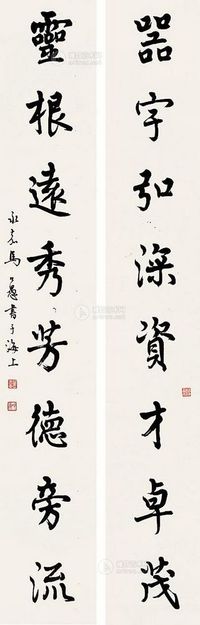 器宇弘深資才卓茂
靈根遠秀芳德旁流
永嘉馬公愚書于海上